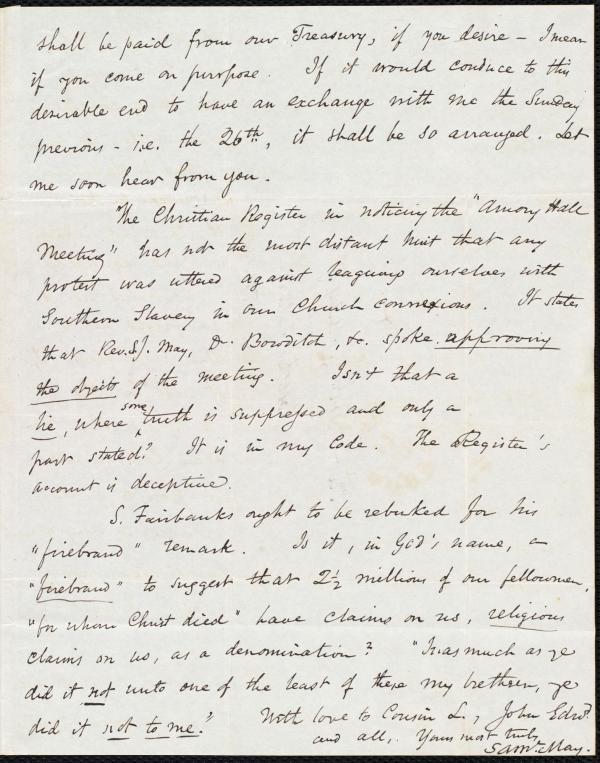 shall be paid from our Treasury, if you desire - I mean
if you come on purpose. If it would conduce to this
desirable end to have an exchange with me the Sunday
previous - i.e. the 26th, it shall be so arranged. Let
me soon hear from you.
The Christian Register in noticing the "Amory Hall
Meeting" has not the most distant hint that any
protest was uttered against leaguing ourselves with
Southern Slavery in our Church connexions. It states
that Rev. S. J. May, Dr. Bowditch, &c. spoke approving
the objects of the meeting. Isn't that a
lie, where some truth is suppressed and only a
part stated? It is in my Code. The Register's
account is deceptive.
S. Fairbanks ought to be rebuked for his
"firebrand" remark. Is it, in God's name, a
"firebrand" to suggest that 2½ millions of our fellowmen,
"for whom Christ died" have claims on us, religious
claims on us, as a denomination? "Inasmuch as ye
did it not unto one of the least of these my brethren, ye
did it not to me."
With love to Cousin L., John Edwd.
and all, Yours most truly
Saml. May.